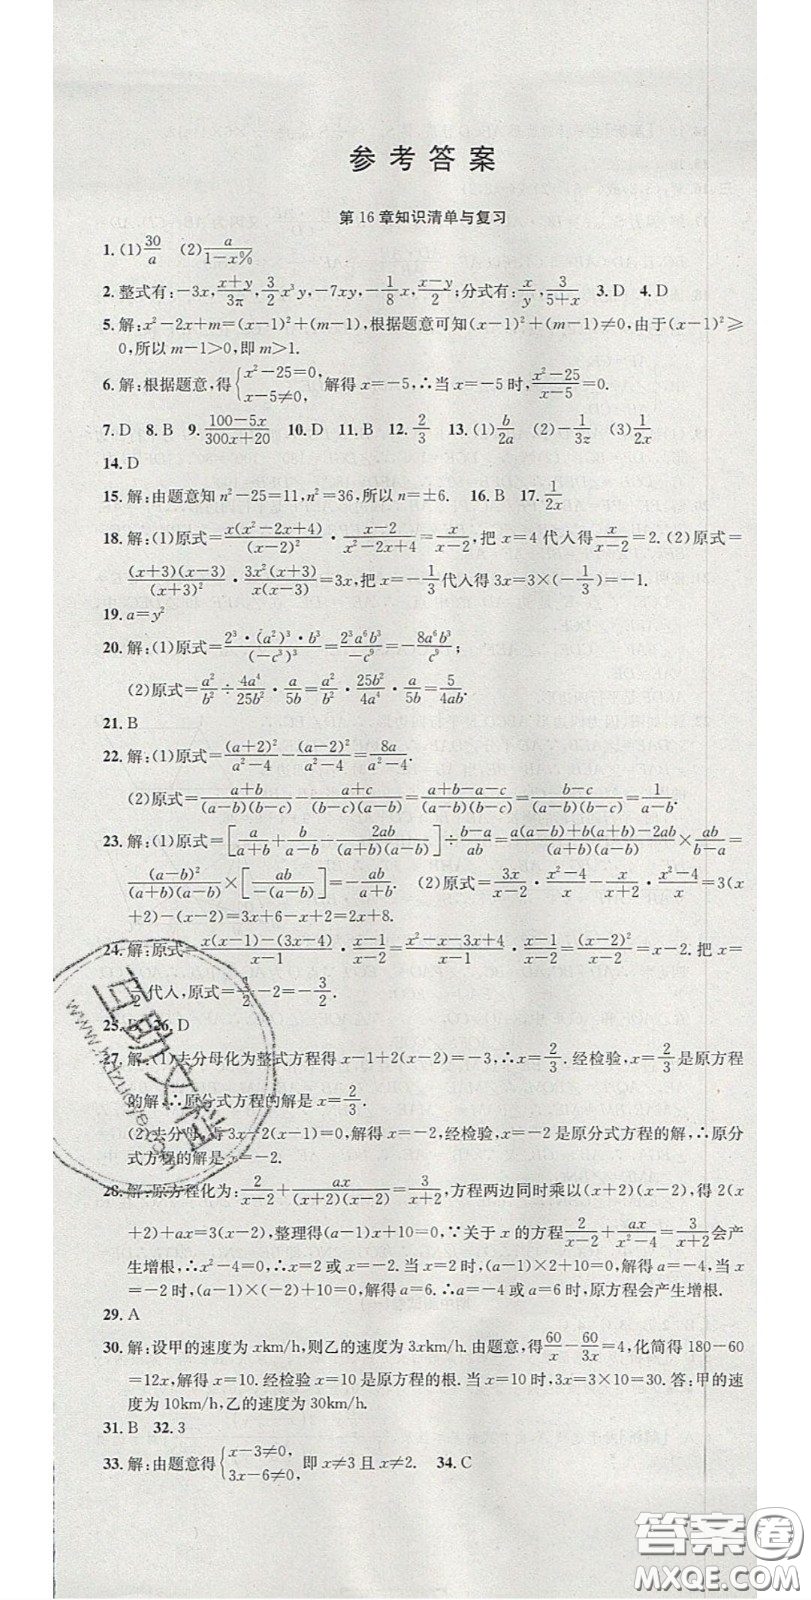 参考答案
第16章知识清单与复习
1. (1)30/a (2)a/(1-x%)
2. 整式有:-3x,(x+y)/3π,(3/2)x³y,-7xy,-(1/8)x,(x-y)/2;分式有:x/y,3/(5+x) 3. D 4. D
5. 解:x²-2x+m=(x-1)²+(m-1),根据题意可知(x-1)²+(m-1)≠0,由于(x-1)²≥
0,所以m-1>0,即m>1.
6. 解:根据题意,得{x²-25=0, x-5≠0, 解得x=-5,∴当x=-5时,(x²-25)/(x-5)=0.
7. D 8. B 9. (100-5x)/(300x+20) 10. D 11. B 12. 2/3 13. (1)b/2a (2)-1/3z (3)1/2x
14. D
15. 解:由题意知n²-25=11,n²=36,所以n=±6. 16. B 17. 1/2x
18. 解:(1)原式=x(x²-2x+4)/(x-2)²·(x-2)/(x²-2x+4)=x/(x-2),把x=4代入得x/(x-2)=2. (2)原式=
(x+3)(x-3)/(x+3)²·3x²(x+3)/x(x-3)=3x,把x=-1/3代入得3x=3×(-1/3)=-1.
19. a=y²
20. 解:(1)原式=2³·(a²)³·b³/(-c³)³=2³a⁶b³/-c⁹=-8a⁶b³/c⁹;
(2)原式=a²/b²÷4a⁴/25b²·a/5b=a²/b²·25b²/4a⁴·a/5b=5/4ab.
21. B
22. 解:(1)原式=(a+2)²/(a²-4)-(a-2)²/(a²-4)=8a/(a²-4).
(2)原式=(a+b)/(a-b)(b-c)-(a+c)/(a-b)(b-c)=(a+b-a-c)/(a-b)(b-c)=(b-c)/(a-b)(b-c)=1/(a-b).
23. 解:(1)原式=[a/(a+b)+b/(a-b)-2ab/(a+b)(a-b)]÷(b-a)/ab=(a(a-b)+b(a+b)-2ab)/(a+b)(a-b)×ab/(b-a)=
(a-b)²/(a+b)(a-b)×[ab/-(a-b)]=-ab/(a+b). (2)原式=3x/(x-2)·(x²-4)/x-x/(x+2)·(x²-4)/x=3(x
+2)-(x-2)=3x+6-x+2=2x+8.
24. 解:原式=(x(x-1)-(3x-4))/(x-1)·(x-1)/(x-2)=(x²-x-3x+4)/(x-1)·(x-1)/(x-2)=(x-2)²/(x-2)=x-2. 把x=
1/2代入,原式=1/2-2=-3/2.
25. B 26. D
27. 解:(1)去分母化为整式方程得x-1+2(x-2)=-3,∴x=2/3. 经检验,x=2/3是原方程
的解,∴原分式方程的解是x=2/3.
(2)去分母得3x-2(x-1)=0,解得x=-2,经检验,x=-2是原分式方程的解,∴原分
式方程的解是x=-2.
28. 解:原方程化为:2/(x-2)+ax/(x+2)(x-2)=3/(x+2),方程两边同时乘以(x+2)(x-2),得2(x
+2)+ax=3(x-2),整理得(a-1)x+10=0,∵关于x的方程2/(x-2)+ax/(x²-4)=3/(x+2)会产
生增根,∴x²-4=0,∴x=2或x=-2. 当x=2时,(a-1)×2+10=0,解得a=-4,当x
=-2时,(a-1)×(-2)+10=0,解得a=6.∴a=-4或a=6时,原方程会产生增根.
29. A
30. 解:设甲的速度为xkm/h,则乙的速度为3xkm/h. 由题意,得60/x-60/3x=4,化简得180-60
=12x,解得x=10. 经检验x=10是原方程的根. 当x=10时,3x=3×10=30. 答:甲的速
度为10km/h,乙的速度为30km/h.
31. B 32. 3
33. 解:由题意得{x-3≠0, 3x-6≠0, 即x≠3且x≠2. 34. C
互助文档
www.hdzuoye.com
答案圈
MXQE.COM